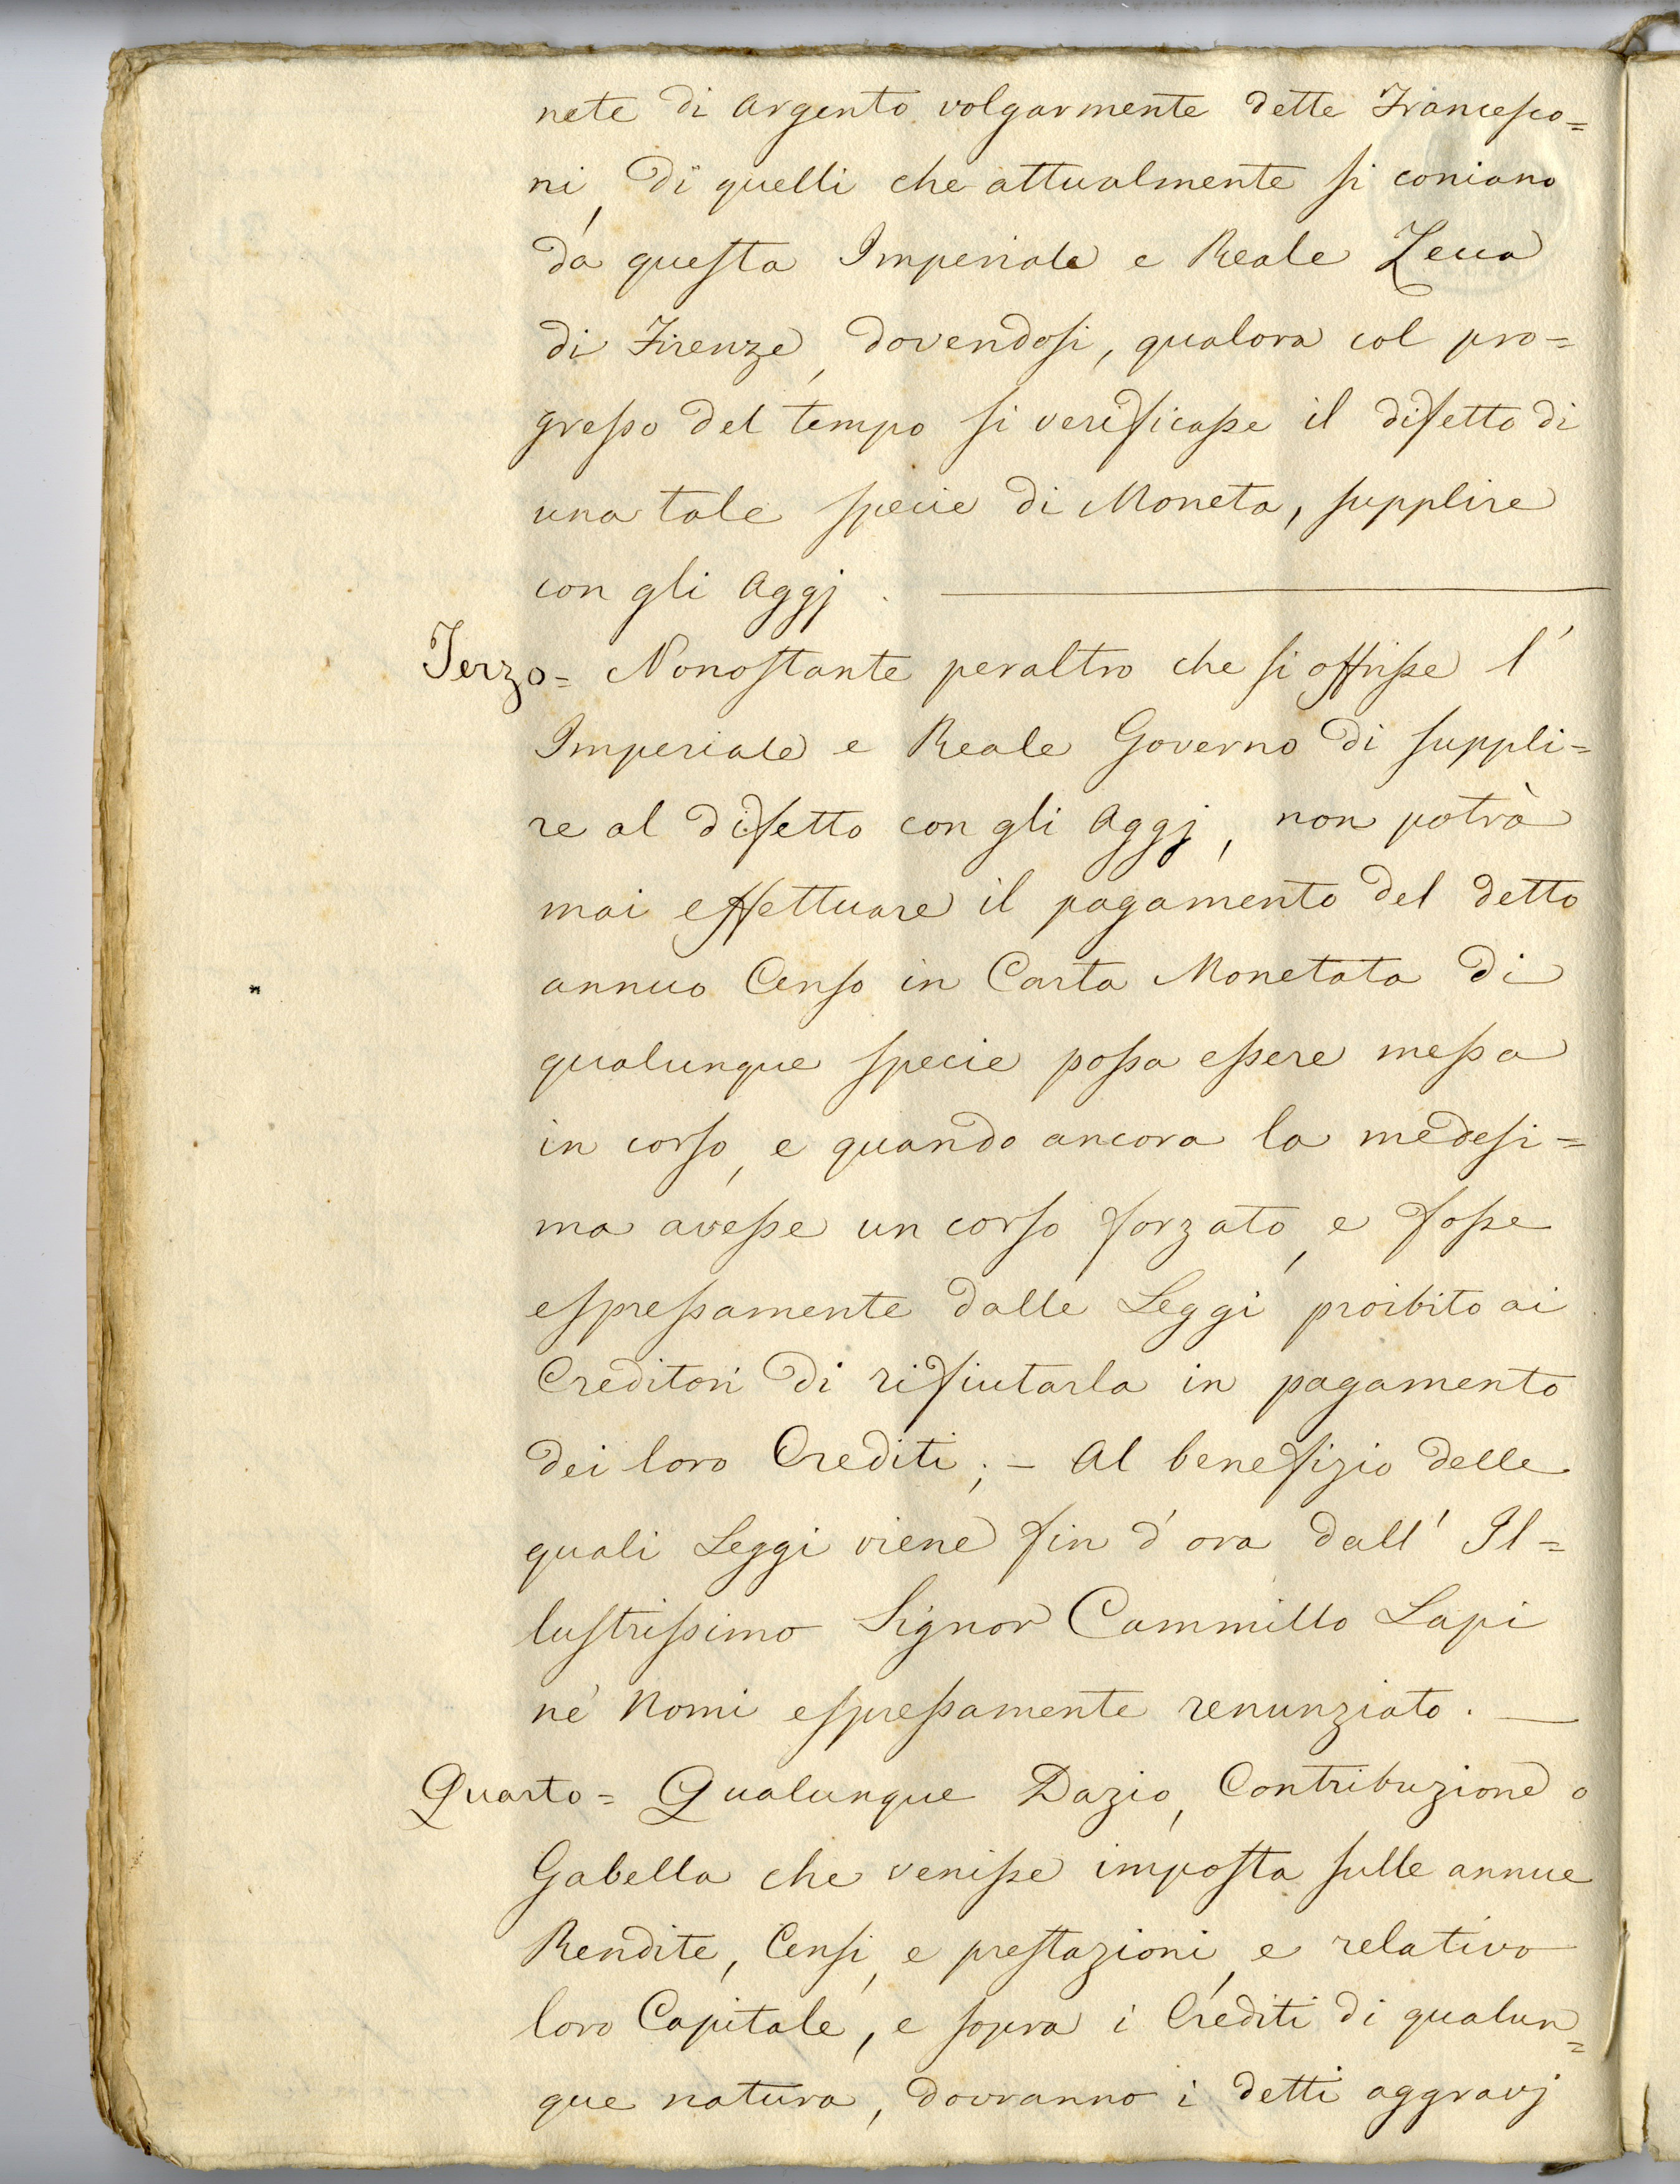 nete di Argento volgarmente dette Francesco=
ni, di quelli che attualmente si coniano
da questa Imperiale e Reale Zecca
di Firenze, dovendosi, qualora col pro=
gresso del tempo si verificasse il difetto di
una tale specie di Moneta, supplire
con gli Aggj.
Terzo = Nonostante peraltro che si offrisse l'
Imperiale e Reale Governo di suppli=
re al difetto con gli Aggj, non potrà
mai effettuare il pagamento del detto
annuo Censo in Carta Monetata di
qualunque specie possa essere messa
in corso, e quando ancora la medesi=
ma avesse un corso forzato, e fosse
espressamente dalle Leggi proibito ai
Creditori di rifiutarla in pagamento
dei loro Crediti; - Al benefizio delle
quali Leggi viene fin d'ora dall' Il=
lustrissimo Signor Cammillo Lapi
né Nomi espressamente renunziato. —
Quarto = Qualunque Dazio, Contribuzione o
Gabella che venisse imposta sulle annue
Rendite, Censi, e prestazioni, e relativo
loro Capitale, e sopra i Crediti di qualun=
que natura, dovranno i detti aggravj